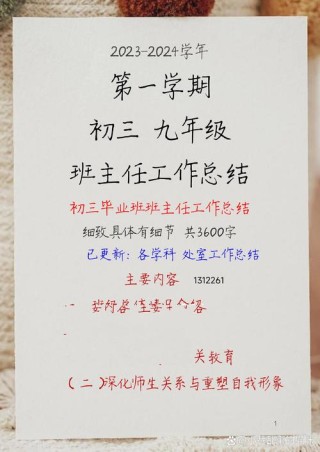 2023-2024学年
第一学期
初三 九年级
班主任工作总结
初三毕业班班主任工作总结
细致具体有细节 共3600字
已更新：各学科 处室工作总结
主要内容 1312261
关教育
(二)深化师生关系与重塑自我形象
1